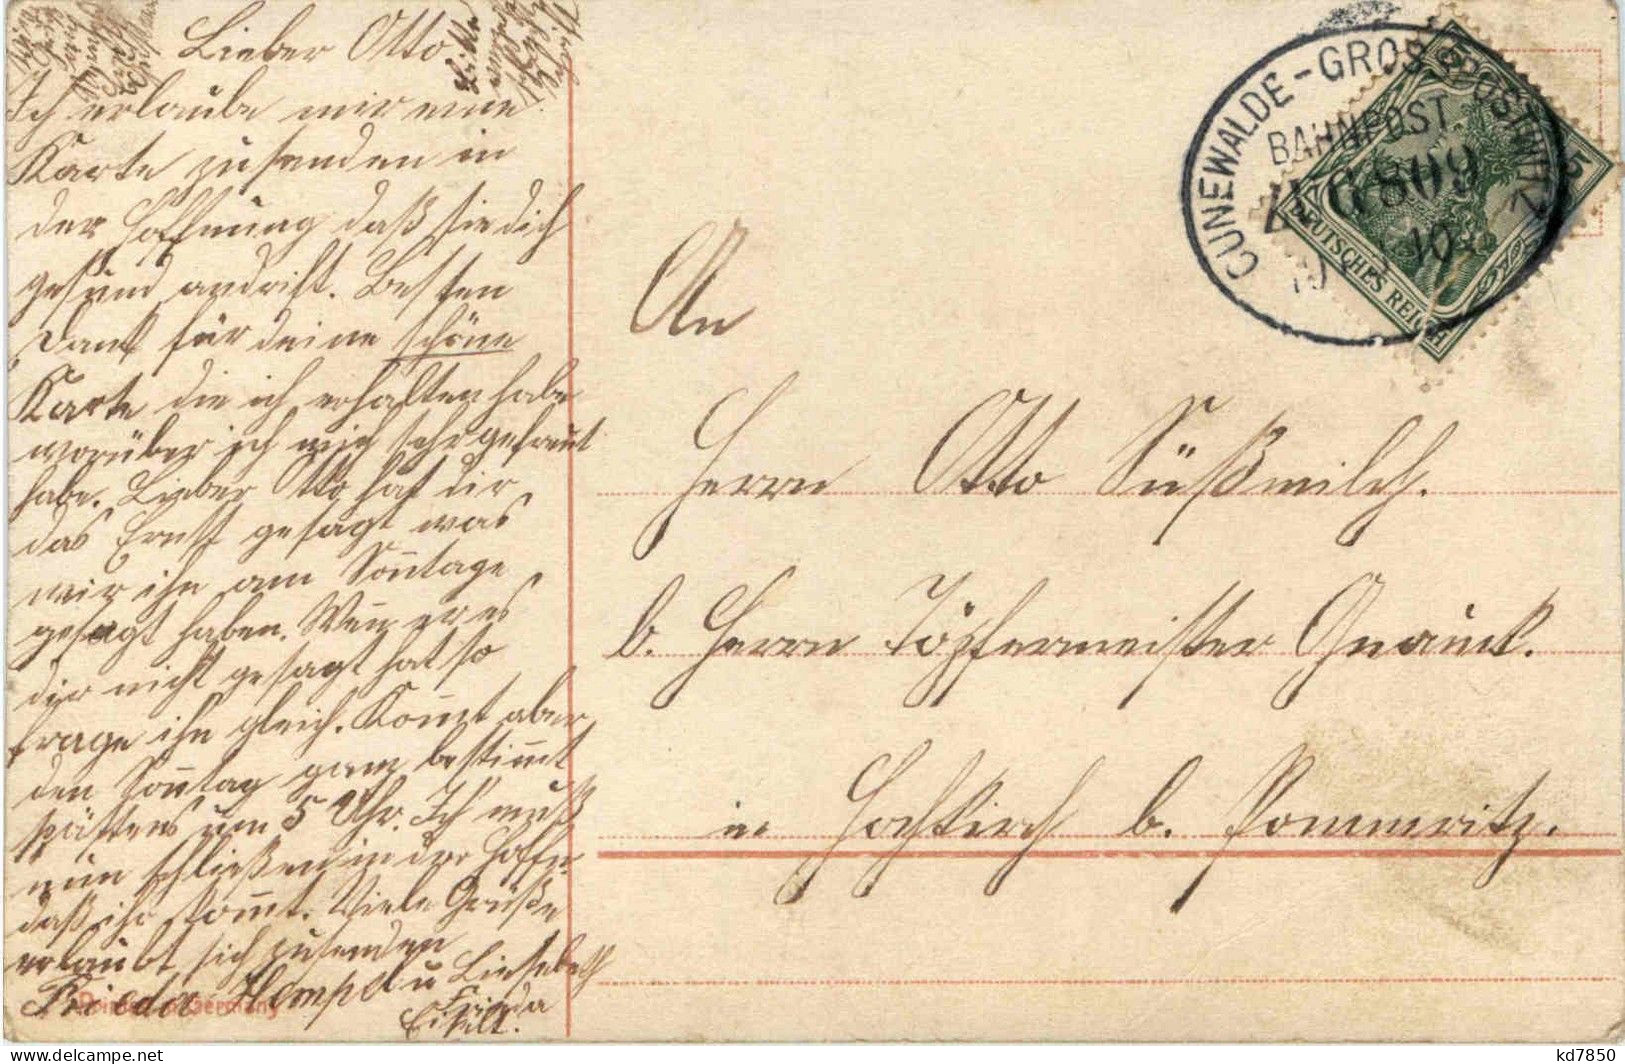 Lieber Otto
Bitte
Ich erlaube mir eine
Karte zu senden in
der Hoffnung daß sie dich
gesund andrift. Besten
Dank für deine schöne
Karte die ich erhalten habe
worüber ich mich sehr gefraut
habe. Lieber Otto hat dir
das Ernst gesagt was
wir ihn am Son̄tage
gesagt haben. Wen̄ er es
dir nicht gesagt hat so
frage ihn gleich. Kom̄t aber
den Son̄tag ganz bestim̄t
spätens um 5 Uhr. Ich muß
nun schließen in der Hoffn.
daß ihr kom̄t. Viele Grüße
erlaubt sich zusenden
Frieda Hempel u Liesebeth
Frieda
Printed in Germany
CUNEWALDE - GROSS POSTWITZ
BAHNPOST.
ZUG 809
10
5
DEUTSCHES REICH
An
Herrn Otto Süßmilch.
b. Herrn Töpfermeister Gnauck.
in Hochkirch b. Pommritz.
kd7850